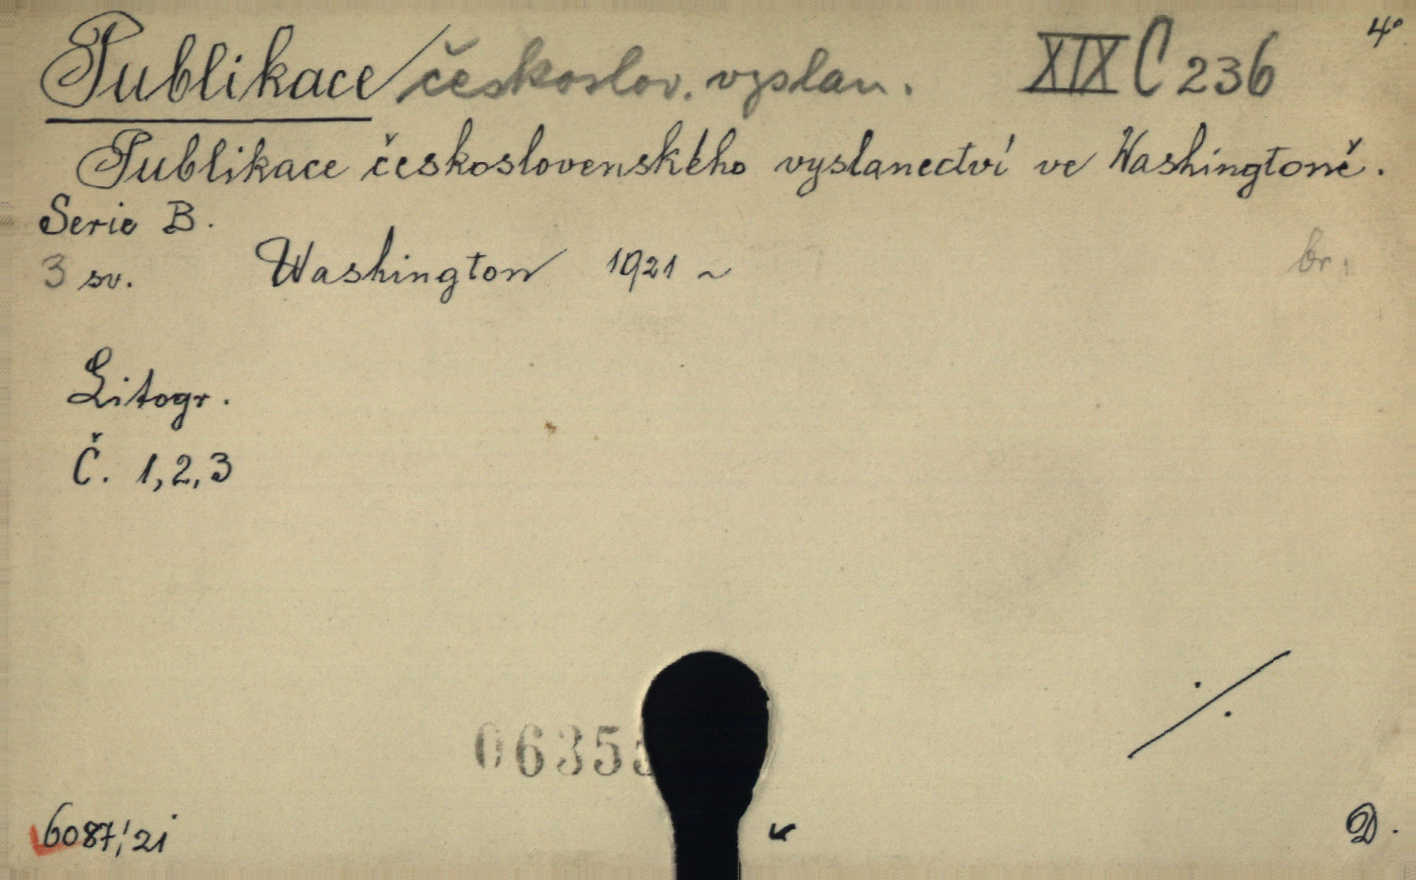 Publikace českoslov. vyslan. XIX C 236 4°
Publikace československého vyslanectví ve Washingtoně.
Serie B.
3 sv. Washington 1921 ~ br.
Litogr.
Č. 1, 2, 3
0635
6087/21 D.